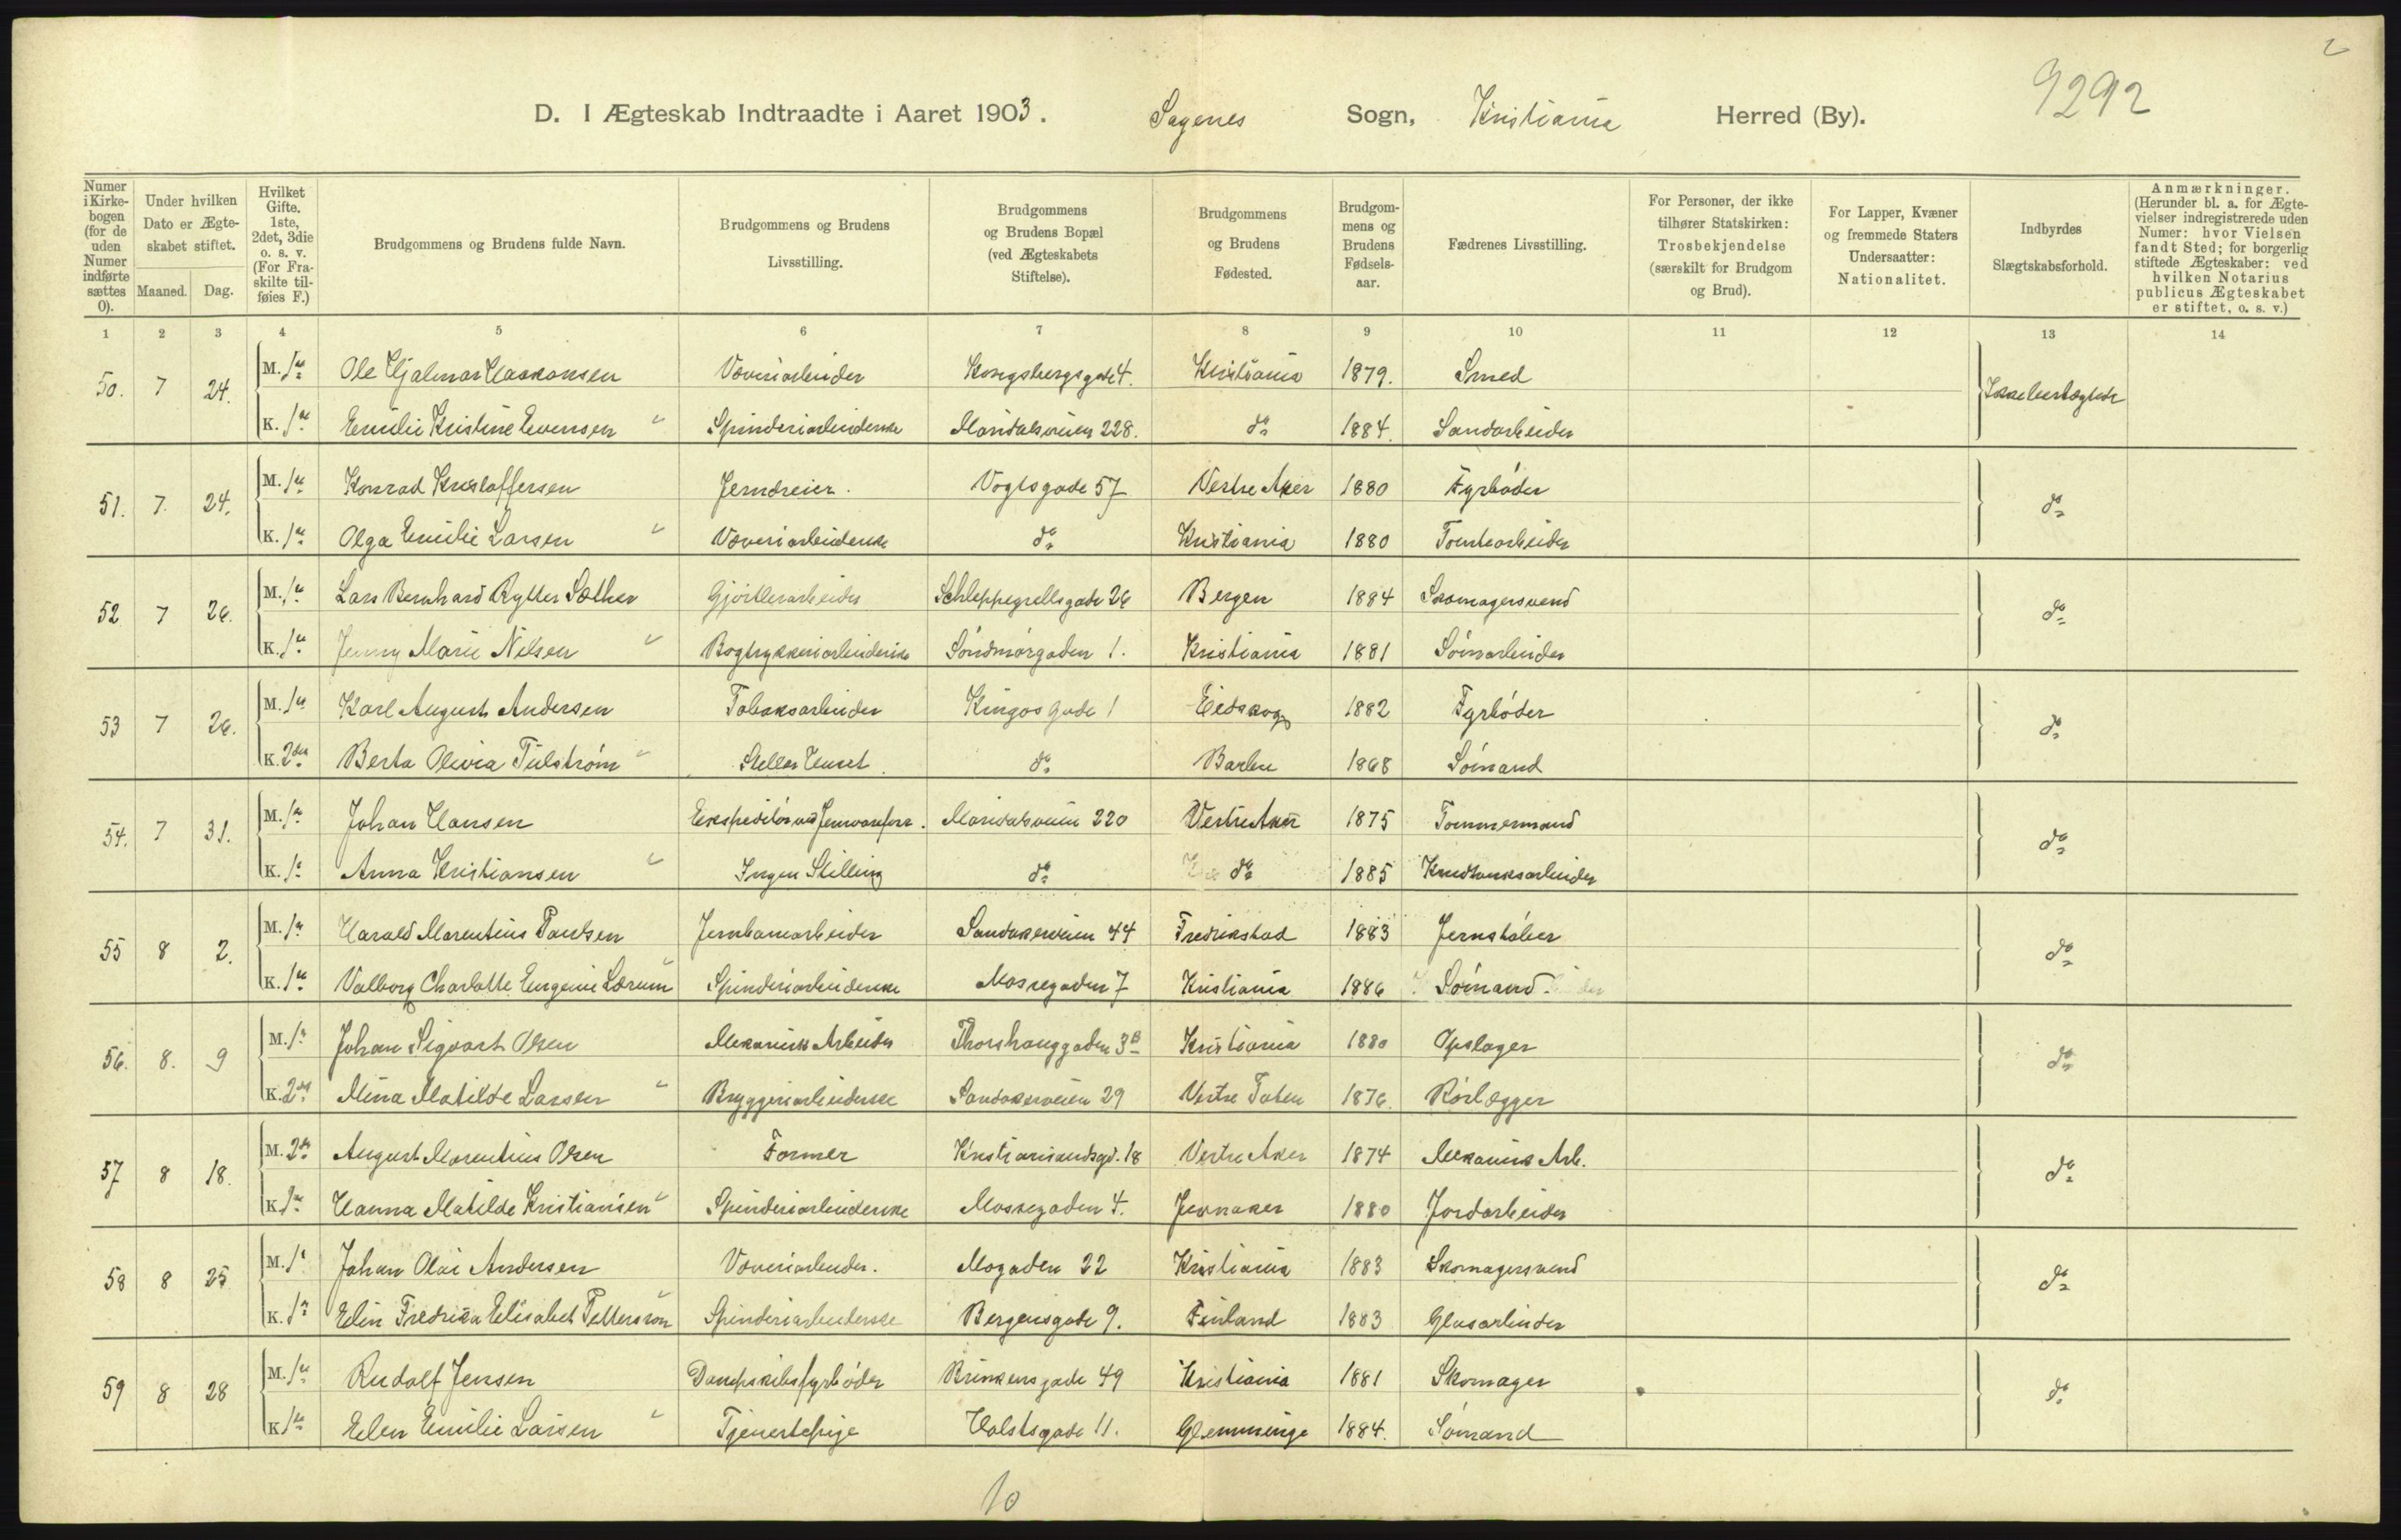 2
9292
D. I Ægteskab Indtraadte i Aaret 1903. Sagenes Sogn, Kristiania Herred (By).
Numer i Kirkebogen (for de uden Numer indførte sættes 0).
Under hvilken Dato er Ægteskabet stiftet.
Maaned. Dag.
Hvilket Gifte. 1ste, 2det, 3die o. s. v. (For Fraskilte tilføies F.)
Brudgommens og Brudens fulde Navn.
Brudgommens og Brudens Livsstilling.
Brudgommens og Brudens Bopæl (ved Ægteskabets Stiftelse).
Brudgommens og Brudens Fødested.
Brudgommens og Brudens Fødselsaar.
Fædrenes Livsstilling.
For Personer, der ikke tilhører Statskirken: Trosbekjendelse (særskilt for Brudgom og Brud).
For Lapper, Kvæner og fremmede Staters Undersaatter: Nationalitet.
Indbyrdes Slægtskabsforhold.
Anmærkninger. (Herunder bl. a. for Ægtevielser indregistrerede uden Numer: hvor Vielsen fandt Sted; for borgerlig stiftede Ægteskaber: ved hvilken Notarius publicus Ægteskabet er stiftet, o. s. v.)
1 2 3 4 5 6 7 8 9 10 11 12 13 14
50. 7 24. M. 1ste Ole Hjalmar Haakonsen Væveriarbeider Kongsbergsgade 4. Kristiania 1879. Smed Ikke beslægtede
K. 1ste Emilie Kristine Evensen Spinderiarbeiderske Maridalsveien 228. do 1884. Sandarbeider
51. 7. 24. M. 1ste Konrad Kristoffersen Jerndreier. Vogtsgade 57 Vestre Aker 1880 Fyrbøder do
K. 1ste Olga Emilie Larsen Væveriarbeiderske do Kristiania 1880 Tomtearbeider
52 7 26. M. 1ste Lars Bernhard Rytter Sæther Gjørtlerarbeider Schleppegrellsgade 26 Bergen 1884 Skomagersvend do
K. 1ste Jenny Marie Nilsen Bogtrykkeriarbeiderske Søndmørgaden 1. Kristiania 1881
53 7 26. M. 1ste Karl August Andersen Tobaksarbeider Kingosgade 1 Eidskog 1882 Fyrbøder do
K. 2den Berta Olivia Tülstrøm Steller Huset do Barbu 1868 Sømand
54. 7 31. M. 1ste Johan Hansen Ekspeditør ved Jernvareforr. Maridalsveien 220 Vestre Aker 1875 Tømmermand do
K. 1ste Anna Kristiansen Ingen Stilling do do 1885 Krudtværksarbeider
55 8 2. M. 1ste Harald Marentius Paulsen Jernbanearbeider Sandakerveien 44 Fredrikstad 1883 Jernstøber do
K. 1ste Valborg Charlotte Eugenie Lærum Spinderiarbeiderske Mossegaden 7 Kristiania 1886 Sømand
56. 8. 9 M. 1ste Johan Sigvart Olsen Mekanisk Arbeider Thorshauggaden 3B Kristiania 1880 Opslager do
K. 2den Mina Matilde Larsen Bryggeriarbeiderske Sandakerveien 29 Vestre Toten 1876. Rørlægger
57 8 18. M. 2den August Marentius Olsen Former Kristiansandsgd. 18 Vestre Aker 1874 Mekanisk Arb. do
K. 1ste Hanna Matilde Kristiansen Spinderiarbeiderske Mossegaden 4. Jevnaker 1880 Jordarbeider
58 8 25 M. 1ste Johan Olai Andersen Væveriarbeider. Mogaden 22 Kristiania 1883 Skomagersvend do
K. 1ste Elin Fredrika Elisabet Pettersson Spinderiarbeiderske Bergensgade 9. Finland 1883 Glasarbeider
59 8 28 M. 1ste Rudolf Jensen Dampskibsfyrbøder Brinkensgade 49 Kristiania 1881 Skomager do
K. 1ste Elen Emilie Larsen Tjenestepige Holstsgade 11. Glemminge 1884. Sømand
10